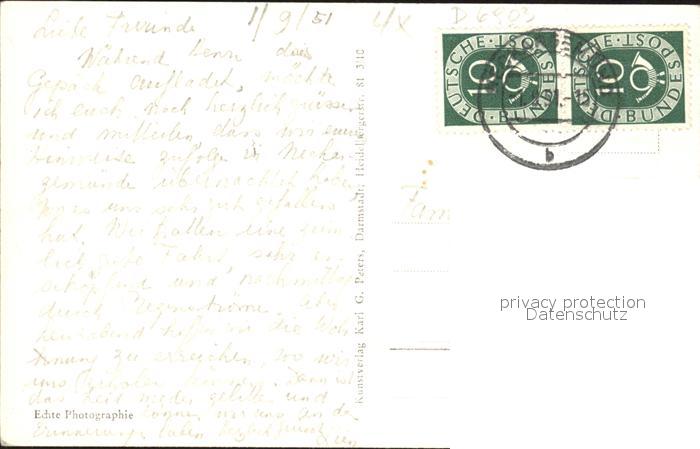 Liebe Freunde 1/9/51 4x D 6803
Während Benn das
Gepäck aufladet, möchte
ich euch noch herzlich grüssen
und mitteilen dass wir einer
Hinweise zufolge in Neckar-
gemünde übernachtet haben
wo es uns sehr gut gefallen
hat. Wir hatten eine ziem-
lich gute Fahrt, sehr er-
schöpfend und nachmittags
durch Regenströme.
heute abend hoffen wir die Woh-
nung zu erreichen, wo wir
uns können. Dann ist
das Leid wieder gelitten und
können wir uns an den
Erinnerungen laben
Echte Photographie
Kunstverlag Karl G. Peters, Darmstadt, Heidelbergerstr. 81 3/10
DEUTSCHE BUNDESPOST 10
DEUTSCHE BUNDESPOST 10
b
Fam
privacy protection
Datenschutz